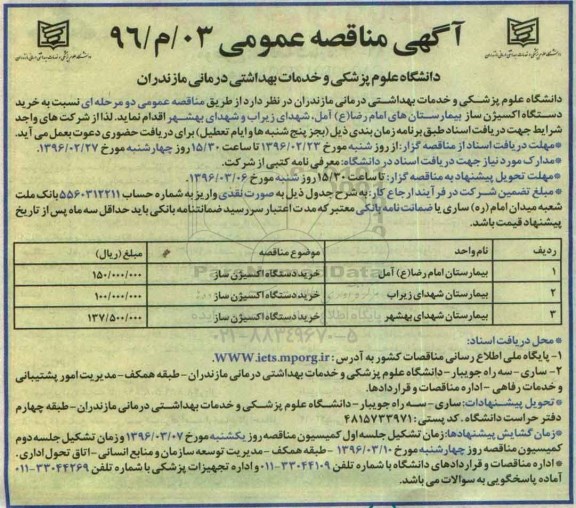 آگهی مناقصه عمومی ۰۳/م/۹۶
دانشگاه علوم پزشکی و خدمات بهداشتی درمانی مازندران
دانشگاه علوم پزشکی و خدمات بهداشتی درمانی مازندران در نظر دارد از طریق مناقصه عمومی دو مرحله ای نسبت به خرید
دستگاه اکسیژن ساز بیمارستان های امام رضا(ع) آمل، شهدای زیراب و شهدای بهشهر اقدام نماید. لذا از شرکت های واجد
شرایط جهت دریافت اسناد طبق برنامه زمان بندی ذیل (بجز پنج شنبه ها و ایام تعطیل) برای دریافت حضوری دعوت بعمل می آید.
*مهلت دریافت اسناد از مناقصه گزار: از روز شنبه مورخ ۱۳۹۶/۰۲/۲۳ تا ساعت ۱۵/۳۰ روز چهارشنبه مورخ ۱۳۹۶/۰۲/۲۷.
*مدارک مورد نیاز جهت دریافت اسناد در دانشگاه: معرفی نامه کتبی از شرکت.
*مهلت تحویل پیشنهاد به مناقصه گزار: تا ساعت ۱۵/۳۰ روز شنبه مورخ ۱۳۹۶/۰۳/۰۶.
*مبلغ تضمین شرکت در فرآیند ارجاع کار: به شرح جدول ذیل به صورت نقدی واریز به شماره حساب ۵۵۶۰۳۱۲۲۱۱ بانک ملت
شعبه میدان امام (ره) ساری یا ضمانت نامه بانکی معتبر که مدت اعتبار سررسید ضمانتنامه بانکی باید حداقل سه ماه پس از تاریخ
پیشنهاد قیمت باشد.
ردیف نام واحد موضوع مناقصه مبلغ (ریال)
۱ بیمارستان امام رضا(ع) آمل خرید دستگاه اکسیژن ساز ۱۵۰/۰۰۰/۰۰۰
۲ بیمارستان شهدای زیراب خرید دستگاه اکسیژن ساز ۱۰۰/۰۰۰/۰۰۰
۳ بیمارستان شهدای بهشهر خرید دستگاه اکسیژن ساز ۱۳۷/۵۰۰/۰۰۰
۰۲۱-۸۸۳۴۹۶۷۰-۵
*محل دریافت اسناد:
۱- پایگاه ملی اطلاع رسانی مناقصات کشور به آدرس: WWW.iets.mporg.ir
۲- ساری - سه راه جویبار - دانشگاه علوم پزشکی و خدمات بهداشتی درمانی مازندران - طبقه همکف - مدیریت امور پشتیبانی
و خدمات رفاهی - اداره مناقصات و قراردادها.
*تحویل پیشنهادات: ساری - سه راه جویبار - دانشگاه علوم پزشکی و خدمات بهداشتی درمانی مازندران - طبقه چهارم
دفتر حراست دانشگاه. کد پستی: ۴۸۱۵۷۳۳۹۷۱
*زمان گشایش پیشنهادها: زمان تشکیل جلسه اول کمیسیون مناقصه روز یکشنبه مورخ ۱۳۹۶/۰۳/۰۷ و زمان تشکیل جلسه دوم
کمیسیون مناقصه روز چهارشنبه مورخ ۱۳۹۶/۰۳/۱۰ - طبقه همکف - مدیریت توسعه سازمان و منابع انسانی - اتاق تحول اداری.
*اداره مناقصات و قراردادهای دانشگاه با شماره تلفن ۳۳۰۴۴۱۰۹-۰۱۱ و اداره تجهیزات پزشکی با شماره تلفن ۳۳۰۴۴۲۶۹-۰۱۱
آماده پاسخگویی به سوالات می باشد.